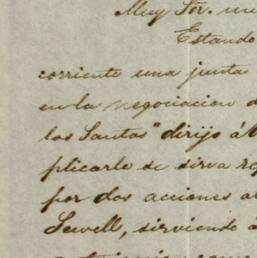 Muy Sor. m
Estando
corriente una junta
en la negociacion d
los Santos" dirijo á
plicarle se sirva re
por dos acciones a
Sewell, sirviendo á